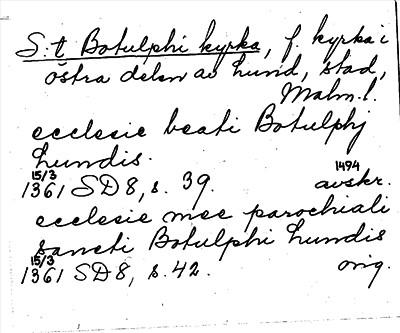 S:t Botulphi kyrka, f. kyrka i
östra delen av Lund, stad,
Malm. l.
ecclesie beati Botulphj
Lundis.
15/3 1494
1361 SD 8, s. 39. avskr.
ecclesie mee parochiali
sancti Botulphi Lundis
15/3
1361 SD 8, s. 42. orig.